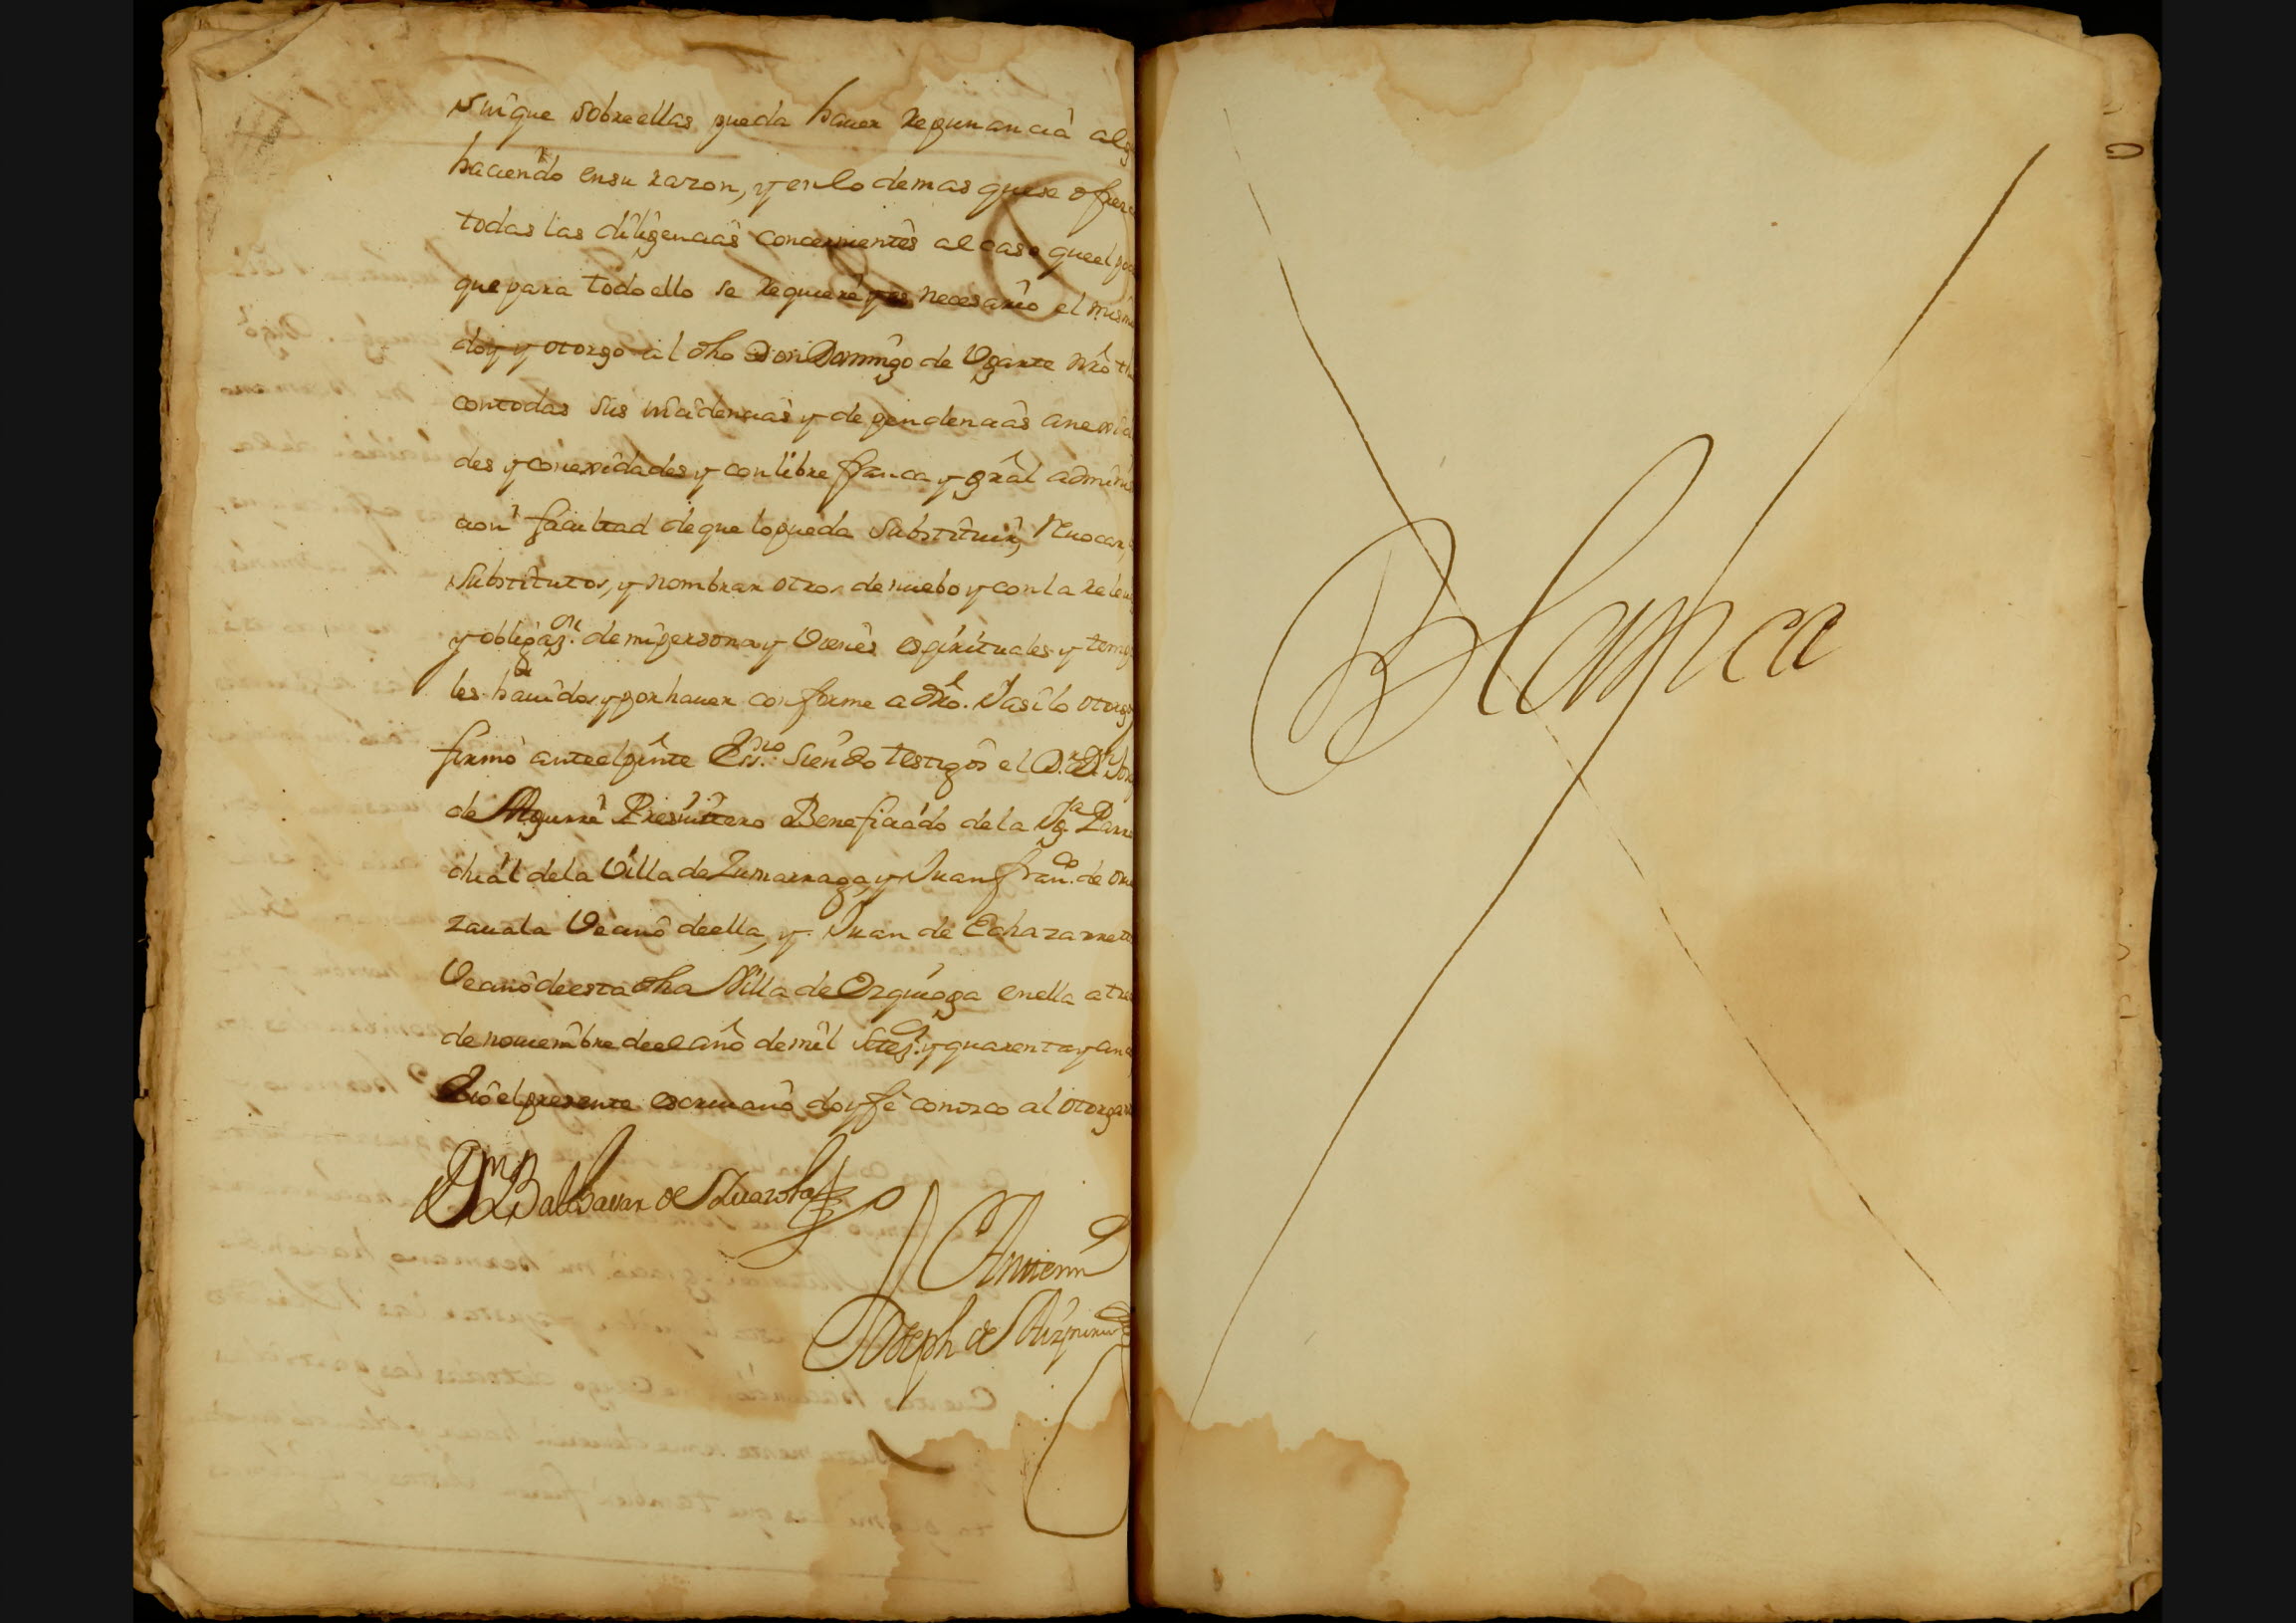 sin que sobre ellas pueda hauer repunancia alg
haciendo en su razon, y en lo demas que se ofrez
todas las diligencias concernientes al caso que el po
que para todo ello se requiere y es necesario el mism
doy y otorgo al dho Don Domingo de Ugarte nro
con todas sus incidencias y dependencias anexida
des y conexidades y con libre franca y gral adminis
cion facultad de que lo pueda substituir, reuocar,
substitutos, y nombrar otros de nuebo y con la releu
y obligaz.on de mi persona y vienes espirituales y temp
les hauidos y por hauer conforme a dro. Y asi lo otorgo
firmo ante el pnte Ess.no siendo testigos el D.r D.n
de Aguirre Presuitero Beneficiado de la Yg.a Parro
chial de la Villa de Zumarraga, y Juan fran.co de
zauala Vecino de ella, y Juan de Echazarreta
Vecino de esta dha Villa de Ezquioga en ella a tres
de nouiembre de el año de mil setez.s y quarenta y cinc
Yo el presente escriuano doy fe conozco al otorgan
D.n Balthassar de
Ante mi
Joseph de
Blanca